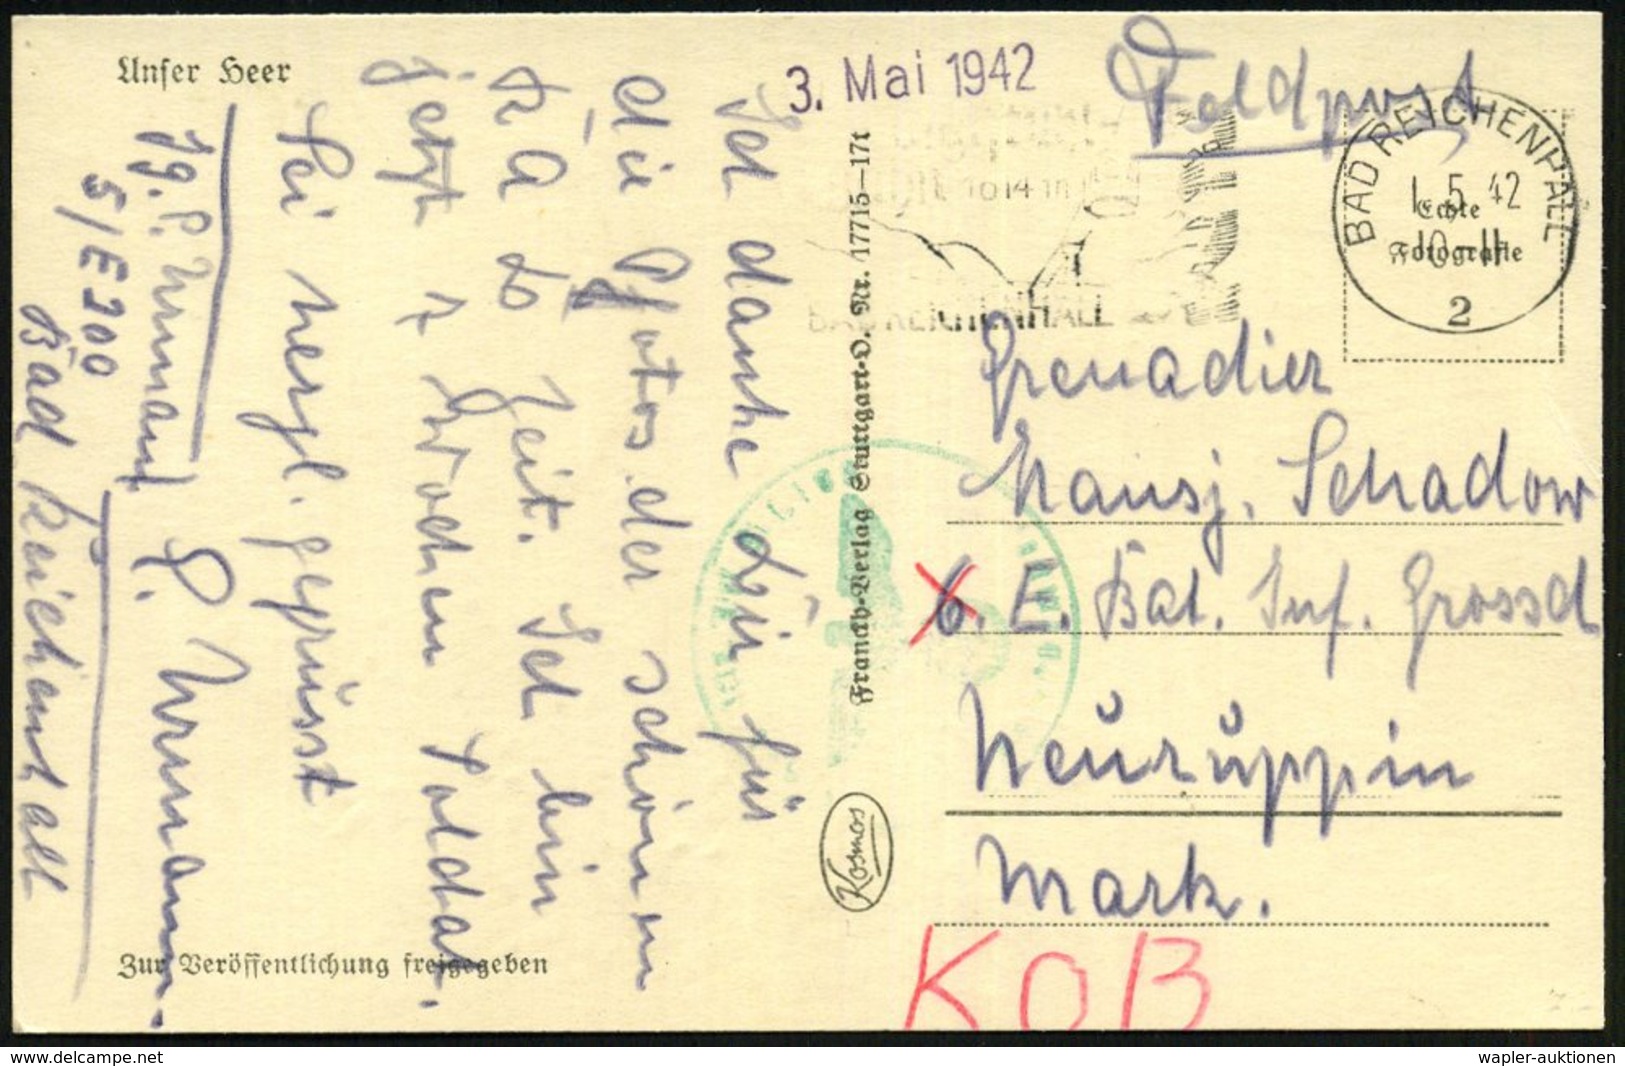 Unser Heer
3. Mai 1942
Feldpost
BAD REICHENHALL
1.5.42
10-11
2
Echte
Fotografie
BAD REICHENHALL
Grenadier
Hansj. Schadow
6. E. Bat. Inf. Grossd
Neuruppin
Mark.
KOB
Ich danke Dir für
die Photos der schönen
Zeit. Ich bin
jetzt 7 Wochen Soldat.
Sei herzl. gegrüsst
5/E 200
Bad Reichenhall
Franckh-Verlag Stuttgart-O. Nr. 17715—17t
Kosmos
Zur Veröffentlichung freigegeben
www.delcampe.net
wapler-auktionen